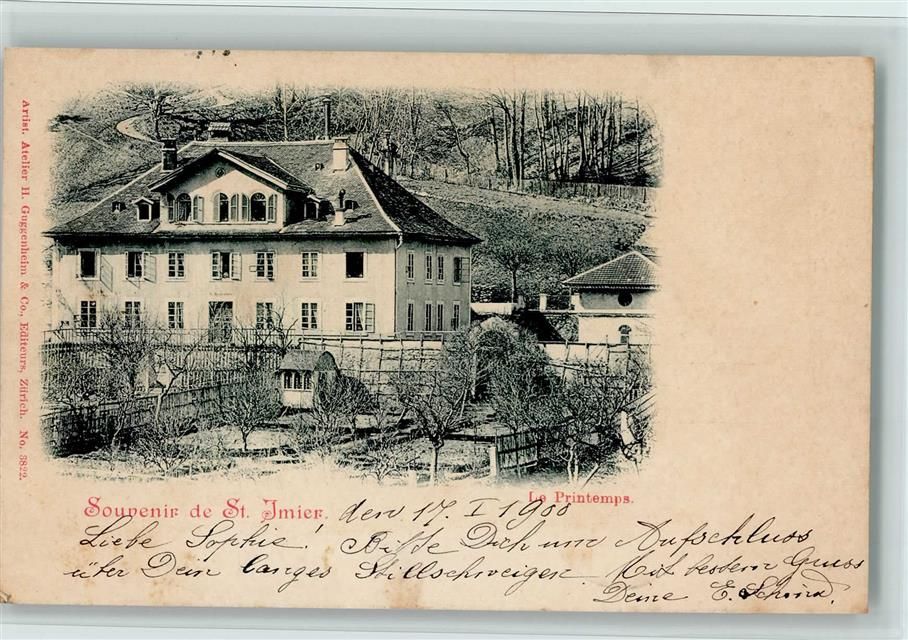 Artist. Atelier H. Guggenheim & Co., Editeurs, Zürich. No. 3822.
Le Printemps.
Souvenir de St. Imier. den 17. I 1900
Liebe Sophie! Bitte Dich um Aufschluss
über Dein langes Stillschweigen. Mit bestem Gruss
Deine E.